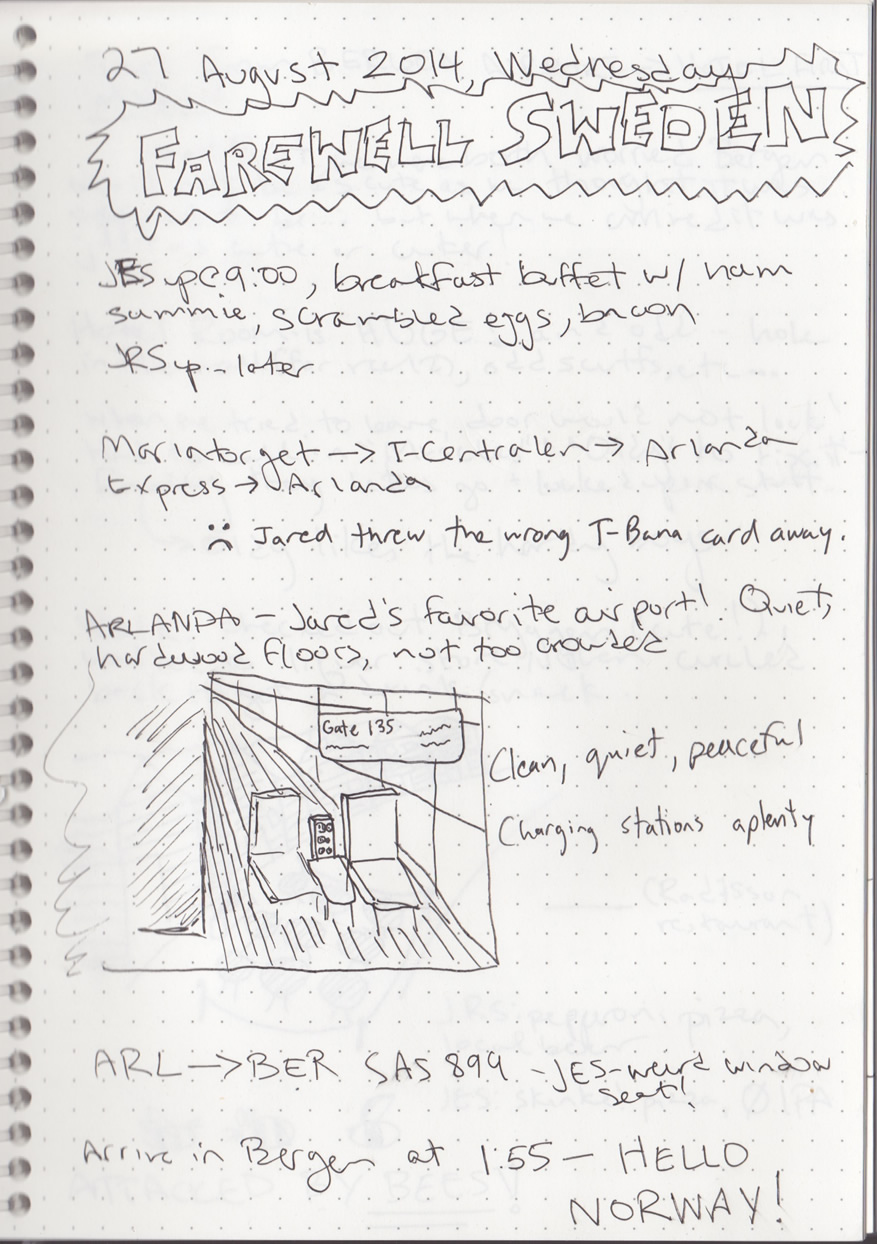 27 August 2014, Wednesday
FAREWELL SWEDEN
JES up @ 9:00, breakfast buffet w/ ham
sammie, scrambled eggs, bacon
JRS up... later
Mariatorget → T-Centralen → Arlanda
Express → Arlanda
Jared threw the wrong T-Bana card away.
ARLANDA - Jared's favorite airport! Quiet,
hardwood floors, not too crowded
Gate 135
Clean, quiet, peaceful
Charging stations aplenty
ARL → BER SAS 899 - JES-weird window
seat!
Arrive in Bergen at 1:55 - HELLO
NORWAY!